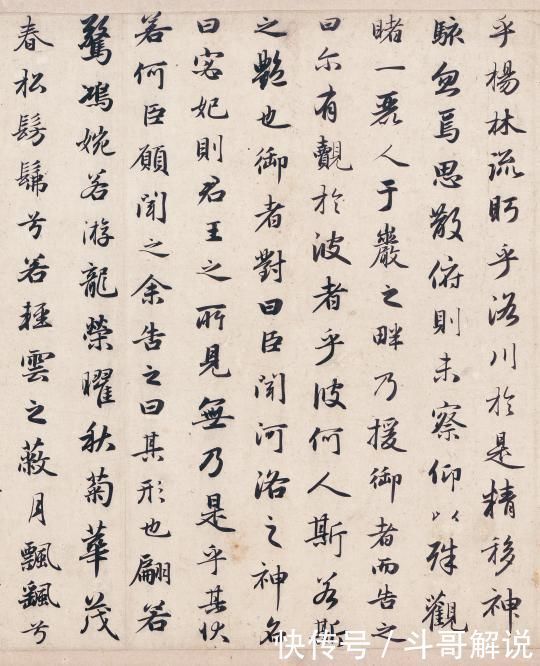 乎楊林流眄乎洛川於是精移神
駭忽焉思散俯則未察仰以殊觀
睹一麗人于巖之畔乃援御者而告之
曰尔有覿於彼者乎彼何人斯若斯
之艷也御者對曰臣聞河洛之神名
曰宓妃則君王之所見無乃是乎其状
若何臣願聞之余告之曰其形也翩若
驚鴻婉若游龍榮曜秋菊華茂
春松髣髴兮若輕雲之蔽月飄颻兮
快传号 / 斗哥解说